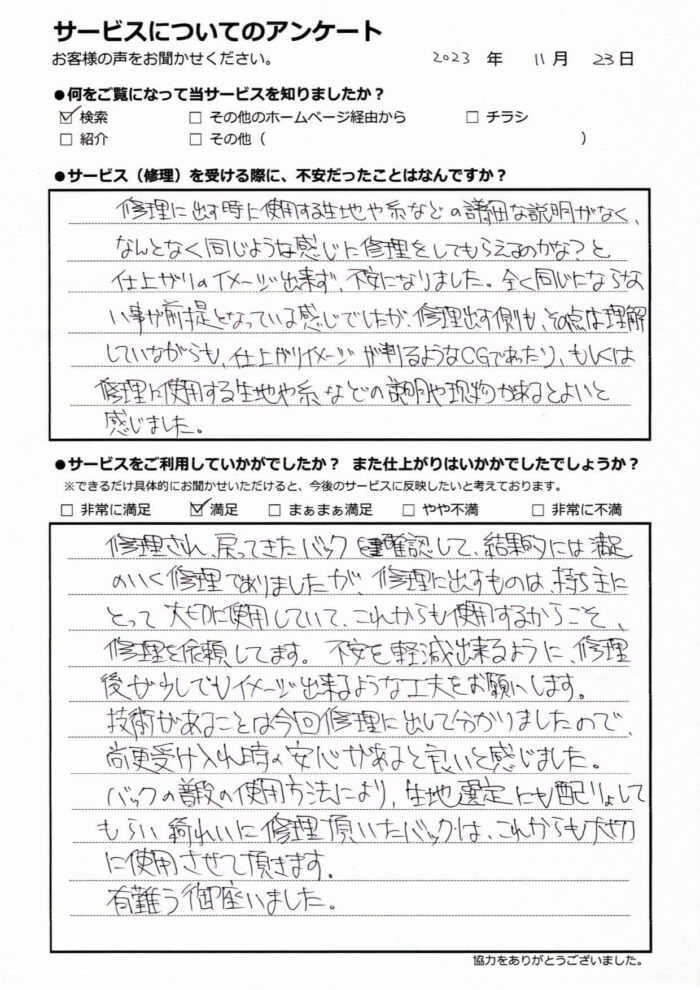 サービスについてのアンケート
お客様の声をお聞かせください。 2023 年 11月 23日
●何をご覧になって当サービスを知りましたか？
☑ 検索 □ その他のホームページ経由から □ チラシ
□ 紹介 □ その他（ ）
●サービス（修理）を受ける際に、不安だったことはなんですか？
修理に出す時に使用する生地や糸などの詳細な説明がなく、
なんとなく同じような感じに修理をしてもらえるのかな？と
仕上がりのイメージ出来ず、不安になりました。全く同じにならな
い事が前提となっている感じでしたが、修理出す側も、その点は理解
していながらも、仕上がりイメージが判るようなCGであたり、もしくは
修理に使用する生地や糸などの説明や現物があるとよいと
感じました。
●サービスをご利用していかがでしたか？ また仕上がりはいかかでしたでしょうか？
※できるだけ具体的にお聞かせいただけると、今後のサービスに反映したいと考えております。
□ 非常に満足 ☑ 満足 □ まぁまぁ満足 □ やや不満 □ 非常に不満
修理され、戻ってきたバック 確認して、結果的には満足
のいく修理でありましたが、修理に出すものは、持ち主に
とって大切に使用していて、これからも使用するからこそ、
修理を依頼してます。不安を軽減出来るように、修理
後が少しでもイメージ出来るような工夫をお願いします。
技術があることは今回修理に出して分かりましたので、
尚更受け入れ時の安心があると良いと感じました。
バックの普段の使用方法により、生地選定にも配りょして
もらい綺れいに修理頂いたバックは、これからも大切
に使用させて頂きます。
有難う御座いました。
協力をありがとうございました。